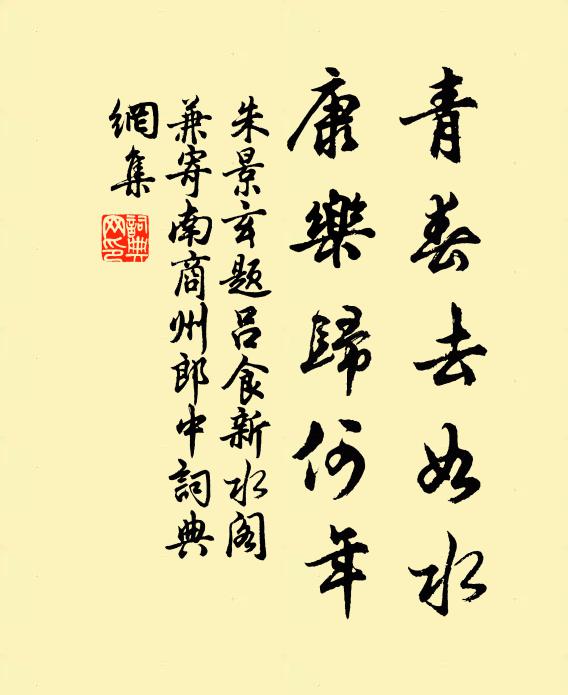 青春去如水
康樂歸何年
朱景玄題呂食新水閣
兼寄南商州郎中詞典
網集
詞典
网印